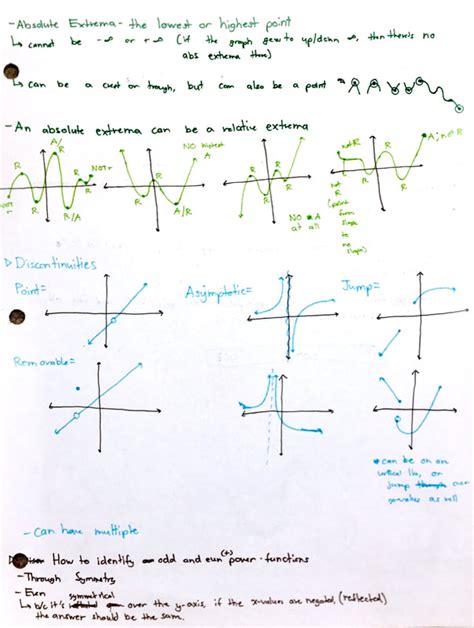 -Absolute Extrema - the lowest or highest point
↳ cannot be -∞ or +∞ (if the graph goes to up/down ∞, then there's no
abs extrema there)
↳ can be a crest or trough, but can also be a point
-An absolute extrema can be a relative extrema
A/
R
R
R
NOT r
NOT r
R
R
R/A
NO highest
A
R
R
A/R
R
R
R
NO A
at all
not R
R
R
A; not R
not
R
(point
from
slope
to
no
slope)
▷ Discontinuities
Point=
Asymptotic=
Jump=
Removable=
• can be on an
vertical line, or
jump over
as well
- Can have multiple
How to identify odd and even (+) power functions
-Through Symmetry
- Even symmetrical
↳ b/c it's over the y-axis, if the x-values are negated, (reflected)
the answer should be the same.